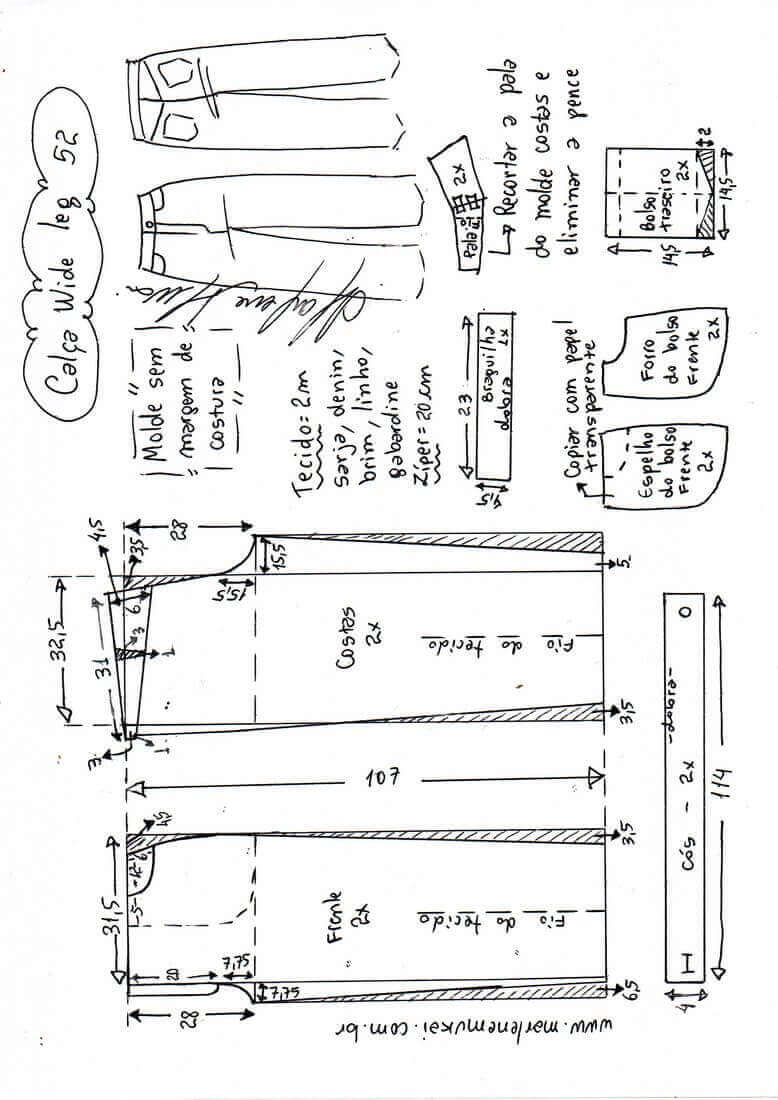 Calça Wide leg 52
Molde sem
margem de
costura
Tecido = 2m
sarja, denin,
brim, linho,
gabardine
Zíper = 20cm
2x
Pala
Recortar a pala
do molde costas e
eliminar a pence
Bolso
traseiro
2x
2
14,5
14,5
23
Braguilha
dobra 1x
4,5
Copiar com papel
transparente
Forro
do bolso
Frente
2x
Espelho
do bolso
Frente
2x
28
4,5
3,5
32,5
31
6
3
1
3
1
15,5
15,5
Costas
2x
Fio do tecido
5
3,5
107
4,5
31,5
5
12
6
Frente
2x
Fio do tecido
3,5
20
7,75
7,75
28
6,5
cós - 2x
-dobra-
114
4
www.marlenemukai.com.br